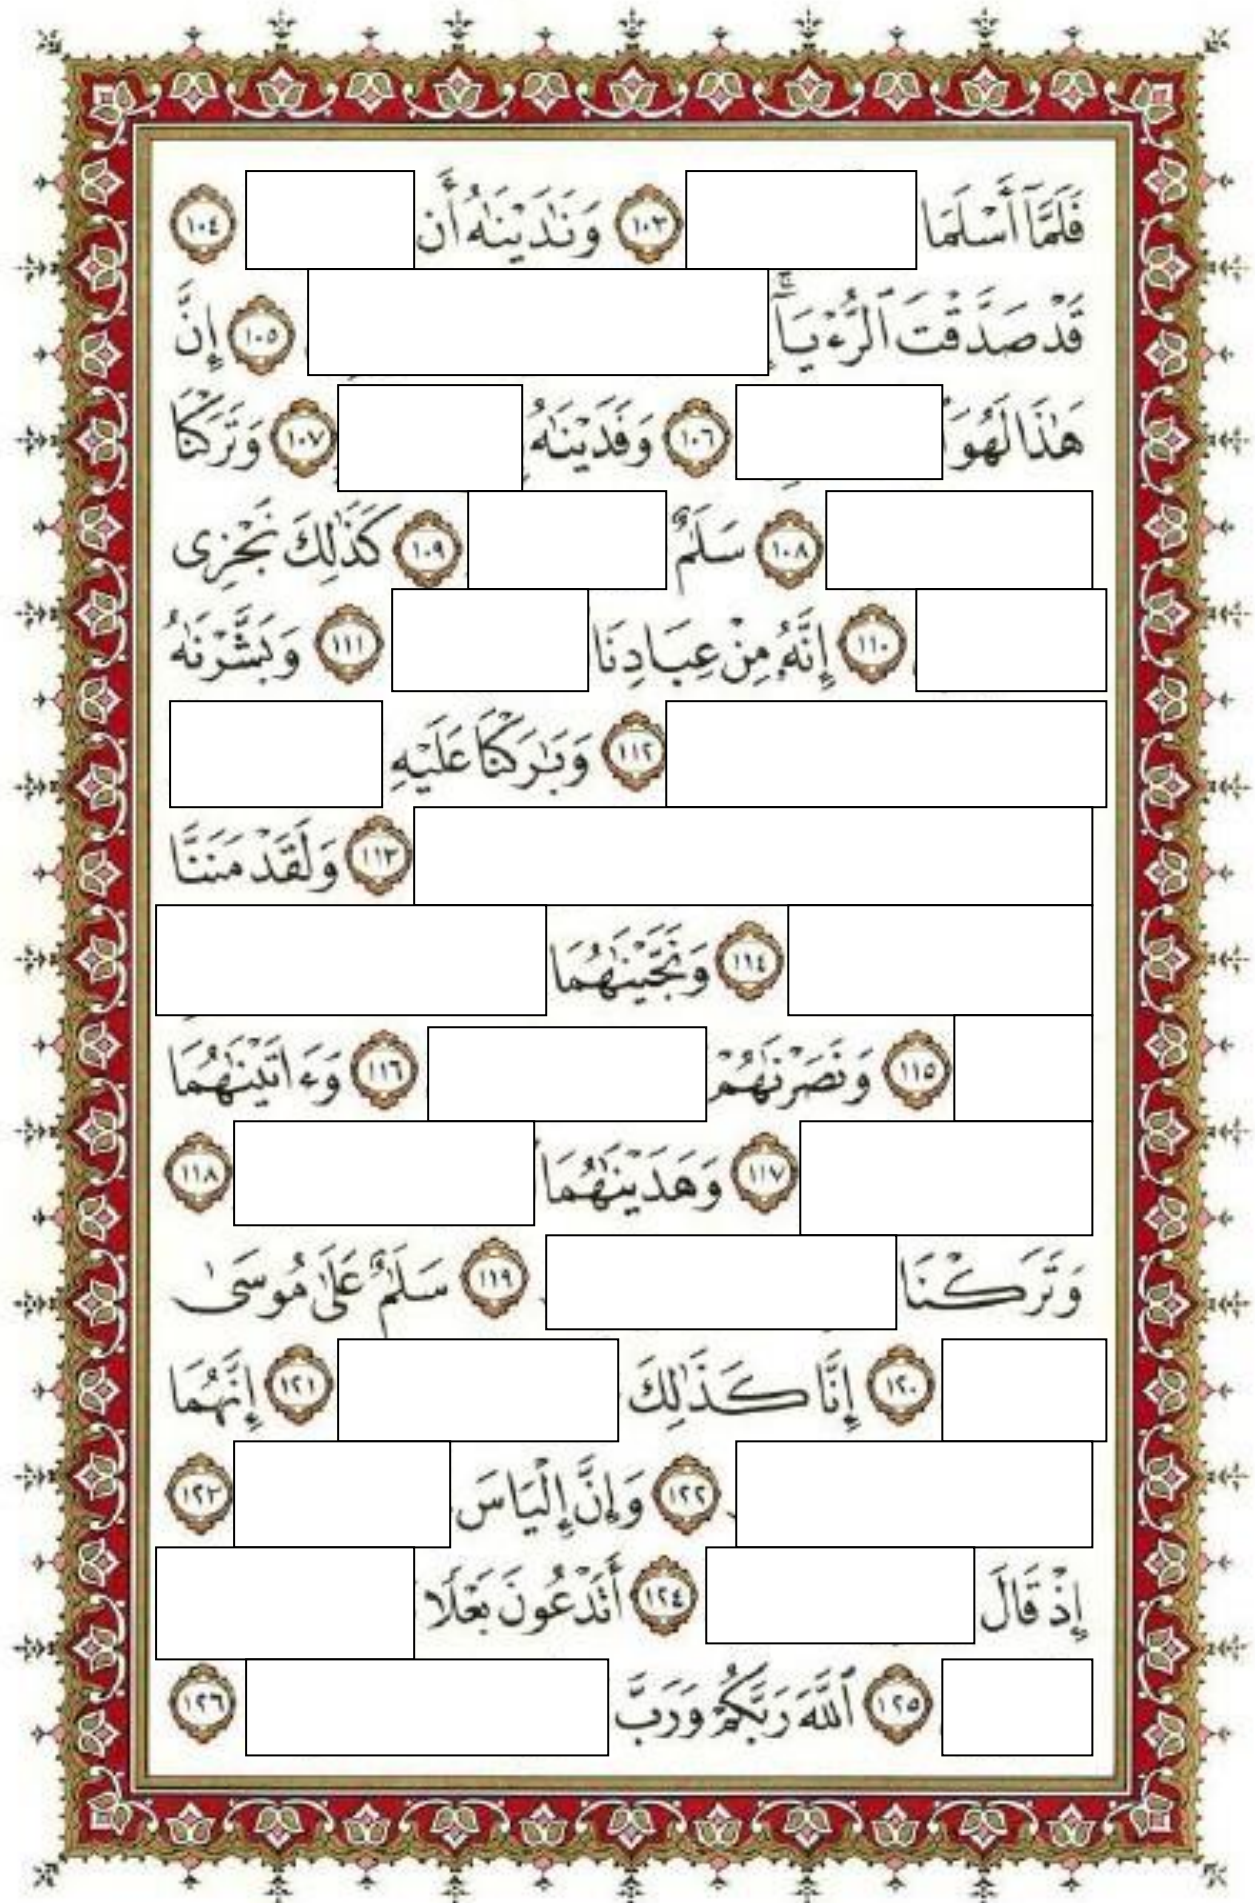 فَلَمَّآ أَسْلَمَا ١٠٣ وَنَٰدَيْنَٰهُ أَن ١٠٤
قَدْ صَدَّقْتَ ٱلرُّءْيَآ ۚ ١٠٥ إِنَّ
هَٰذَا لَهُوَ ١٠٦ وَفَدَيْنَٰهُ ١٠٧ وَتَرَكْنَا
١٠٨ سَلَٰمٌ ١٠٩ كَذَٰلِكَ نَجْزِى
١١٠ إِنَّهُۥ مِنْ عِبَادِنَا ١١١ وَبَشَّرْنَٰهُ
١١٢ وَبَٰرَكْنَا عَلَيْهِ
١١٣ وَلَقَدْ مَنَنَّا
١١٤ وَنَجَّيْنَٰهُمَا
١١٥ وَنَصَرْنَٰهُمْ ١١٦ وَءَاتَيْنَٰهُمَا
١١٧ وَهَدَيْنَٰهُمَا ١١٨
وَتَرَكْنَا ١١٩ سَلَٰمٌ عَلَىٰ مُوسَىٰ
١٢٠ إِنَّا كَذَٰلِكَ ١٢١ إِنَّهُمَا
١٢٢ وَإِنَّ إِلْيَاسَ ١٢٣
إِذْ قَالَ ١٢٤ أَتَدْعُونَ بَعْلًا
١٢٥ ٱللَّهَ رَبَّكُمْ وَرَبَّ ١٢٦